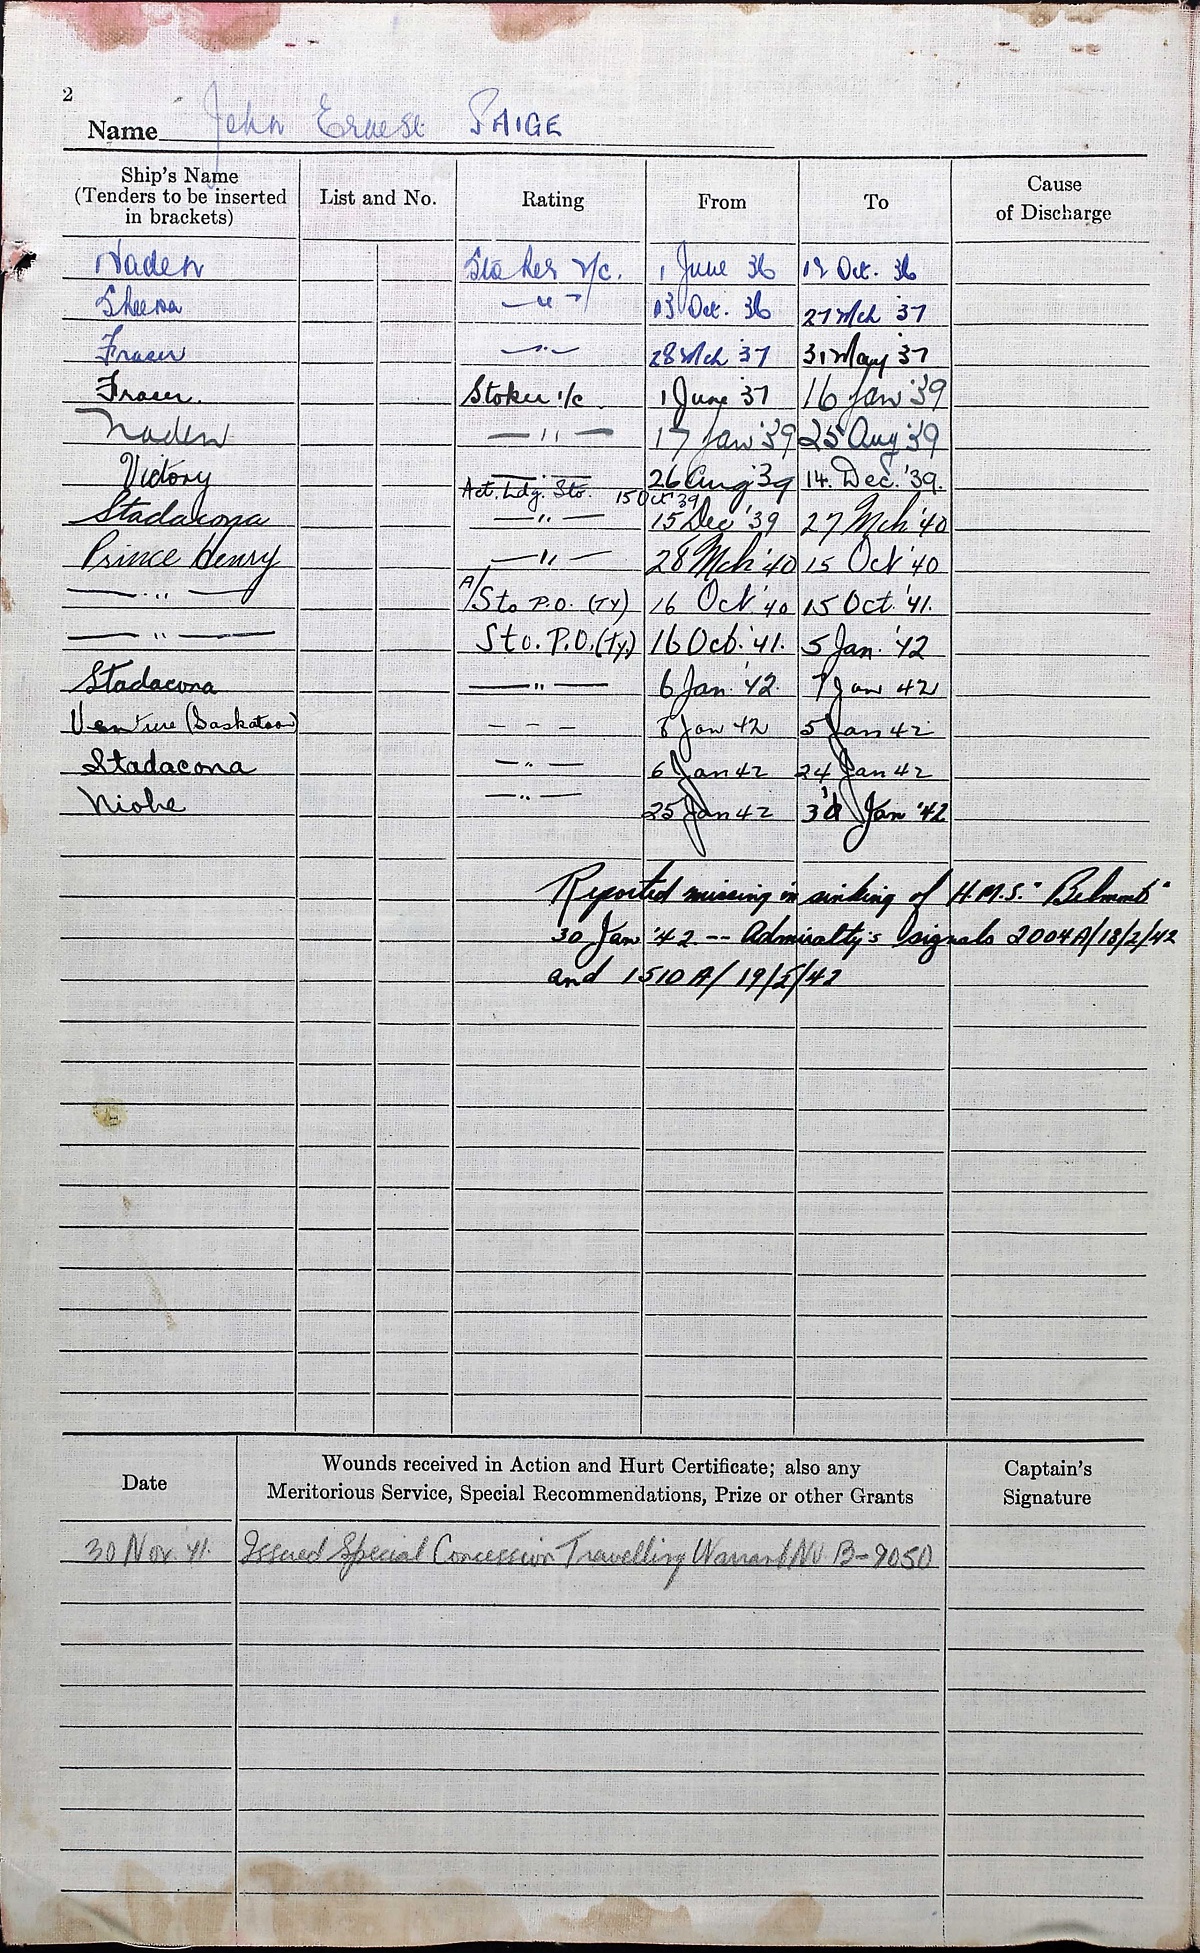 2
Name John Ernest PAIGE
Ship's Name
(Tenders to be inserted
in brackets)
List and No.
Rating
From
To
Cause
of Discharge
Naden Stoker 2/c. 1 June 36 12 Oct. 36
Skeena — " — 13 Oct. 36 27 Mch '37
Fraser — " — 28 Mch '37 31 May '37
Fraser. Stoker 1/c. 1 June 37 16 Jan '39
Naden — " — 17 Jan '39 25 Aug '39
Victory — " — 26 Aug '39 14. Dec. '39.
Act. Ldg. Sto. 15 Oct '39
Stadacona — " — 15 Dec '39 27 Mch '40
Prince Henry — " — 28 Mch '40 15 Oct '40
— " — A/Sto P.O. (Ty) 16 Oct '40 15 Oct '41.
— " — Sto. P.O. (Ty.) 16 Oct. '41. 5 Jan. '42
Stadacona — " — 6 Jan. '42. 7 Jan 42
Venture (Saskatoon) - - - 8 Jan 42 5 Jan 42
Stadacona — " — 6 Jan 42 24 Jan 42
Niobe — " — 25 Jan 42 Jan '42
Reported missing in sinking of H.M.S. "Belmont"
30 Jan '42. -- Admiralty's signals 2004A/18/2/42
and 1510A/ 19/5/42
Date
Wounds received in Action and Hurt Certificate; also any
Meritorious Service, Special Recommendations, Prize or other Grants
Captain's
Signature
30 Nov. '41. Issued Special Concession Travelling Warrant No. B-9050